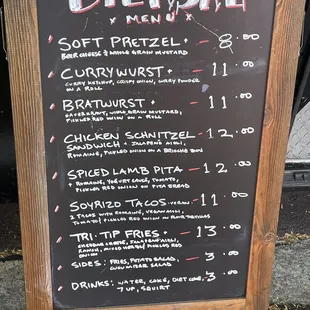 MENU
SOFT PRETZEL - 8.00
BEER CHEESE & WHOLE GRAIN MUSTARD
CURRYWURST - 11.00
CURRY KETCHUP, CRISPY ONION, CURRY POWDER
ON A ROLL
BRATWURST - 11.00
SAUERKRAUT, WHOLE GRAIN MUSTARD,
PICKLED RED ONION ON A ROLL
CHICKEN SCHNITZEL - 12.00
SANDWICH + JALAPEÑO AIOLI,
ROMAINE, PICKLED ONION ON A BRIOCHE BUN
SPICED LAMB PITA - 12.00
+ ROMAINE, YOGURT SAUCE, TOMATO,
PICKLED RED ONION ON PITA BREAD
SOYRIZO TACOS (VEGAN) 11.00
2 TACOS WITH ROMAINE, VEGAN AIOLI,
TOMATO & PICKLED RED ONION WITH FLOUR TORTILLAS
TRI-TIP FRIES - 13.00
CHEDDAR CHEESE, JALAPEÑO AIOLI,
RANCH, MIXED HERBS & PICKLED RED
ONION
SIDES: FRIES, POTATO SALAD, - 3.00
CUCUMBER SALAD
DRINKS: WATER, COKE, DIET COKE, - 3.00
7 UP, SQUIRT